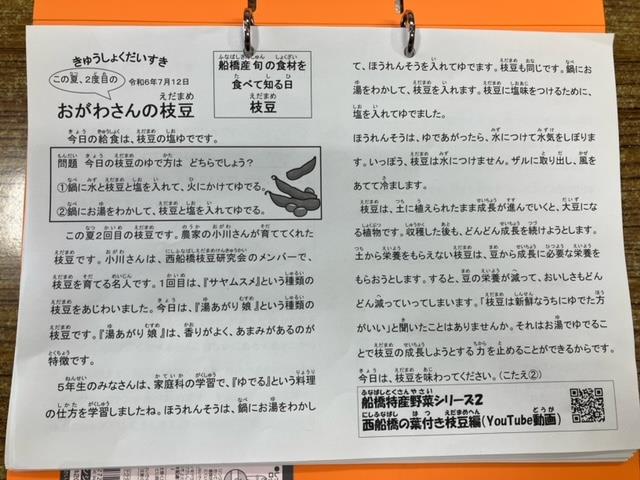 きゅうしょくだいすき
この夏、2度目の
令和6年7月12日
おがわさんの枝豆
船橋産旬の食材を
食べて知る日
枝豆
今日の給食は、枝豆の塩ゆでです。
問題 今日の枝豆のゆで方は どちらでしょう?
①鍋に水と枝豆と塩を入れて、火にかけてゆでる。
②鍋にお湯をわかして、枝豆と塩を入れてゆでる。
この夏2回目の枝豆です。農家の小川さんが育ててくれた
枝豆です。小川さんは、西船橋枝豆研究会のメンバーで、
枝豆を育てる名人です。1回目は、『サヤムスメ』という種類の
枝豆をあじわいました。今日は、『湯あがり娘』という種類の
枝豆です。『湯あがり娘』は、香りがよく、あまみがあるのが
特徴です。
5年生のみなさんは、家庭科の学習で、『ゆでる』という料理
の仕方を学習しましたね。ほうれんそうは、鍋にお湯をわかし
て、ほうれんそうを入れてゆでます。枝豆も同じです。鍋にお
湯をわかして、枝豆を入れます。枝豆に塩味をつけるために、
塩を入れてゆでました。
ほうれんそうは、ゆであがったら、水につけて水気をしぼりま
す。いっぽう、枝豆は水につけません。ザルに取り出し、風を
あてて冷まします。
枝豆は、土に植えられたまま成長が進んでいくと、大豆にな
る植物です。収穫した後も、どんどん成長を続けようとします。
土から栄養をもらえない枝豆は、豆から成長に必要な栄養を
もらおうとします。すると、豆の栄養が減って、おいしさもどん
どん減っていってしまいます。「枝豆は新鮮なうちにゆでた方
がいい」と聞いたことはありませんか。それはお湯でゆでるこ
とで枝豆の成長しようとする力を止めることができるからです。
今日は、枝豆を味わってください。(こたえ②)
船橋特産野菜シリーズ2
西船橋の葉付き枝豆編(YouTube動画)